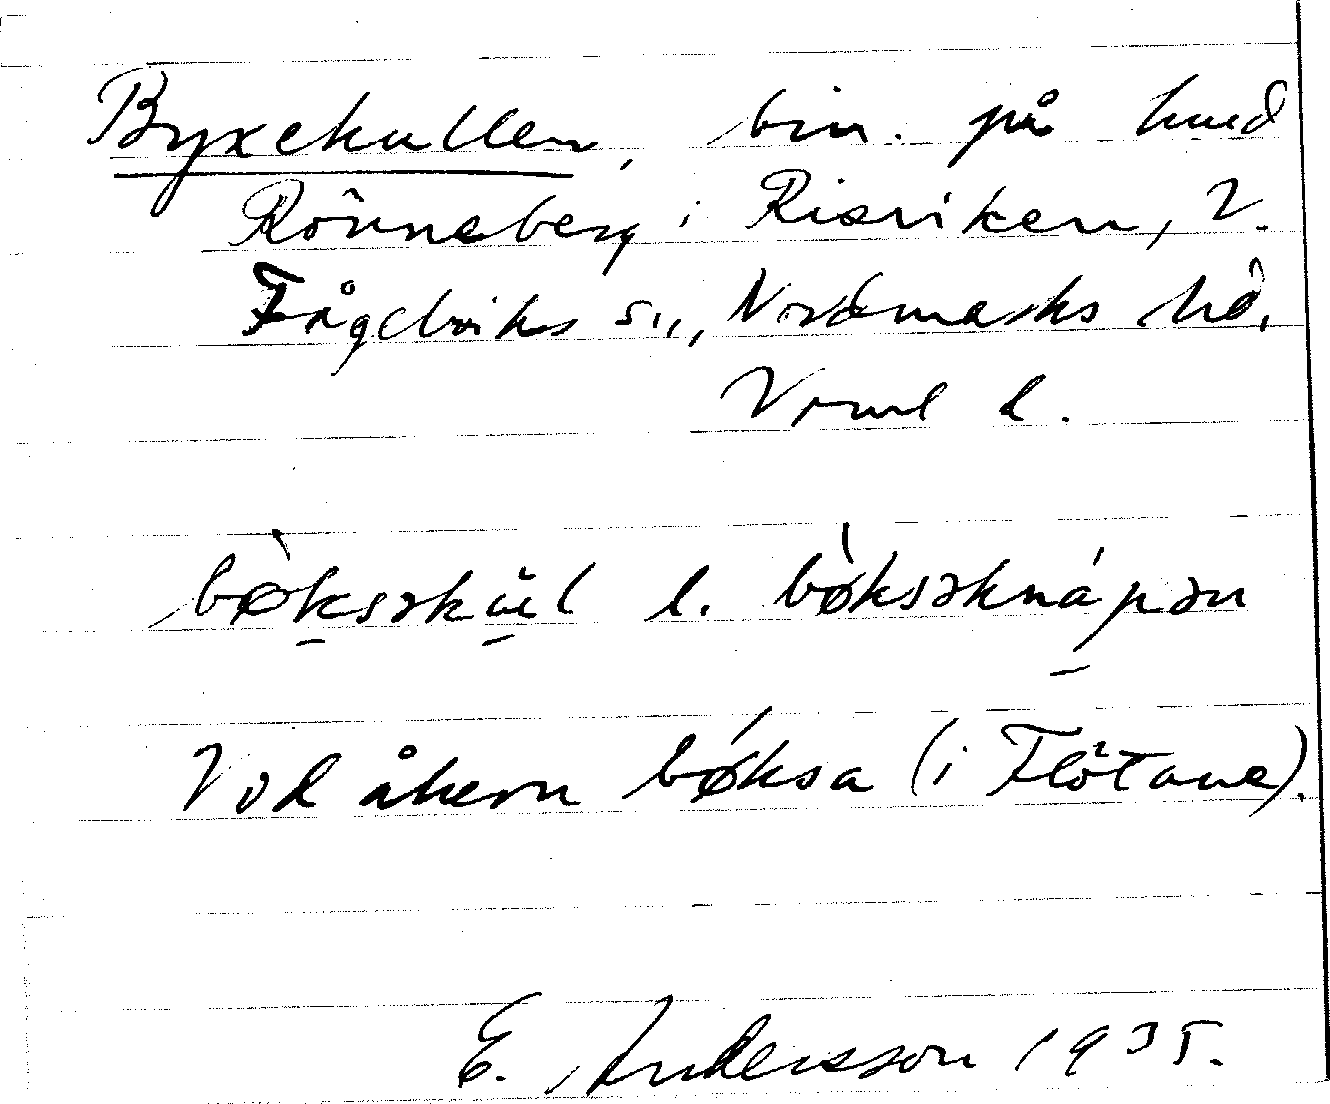 Byxekullen, bin. på hmd
Rönneberg i Risviken, V.
Fågelviks sn, Nordmarks hd,
Vrml l.
bø̀ksəkùl l. bø̀ksəknápən
Vid åkern bǿksa (i Flötane).
E. Andersson 1935.